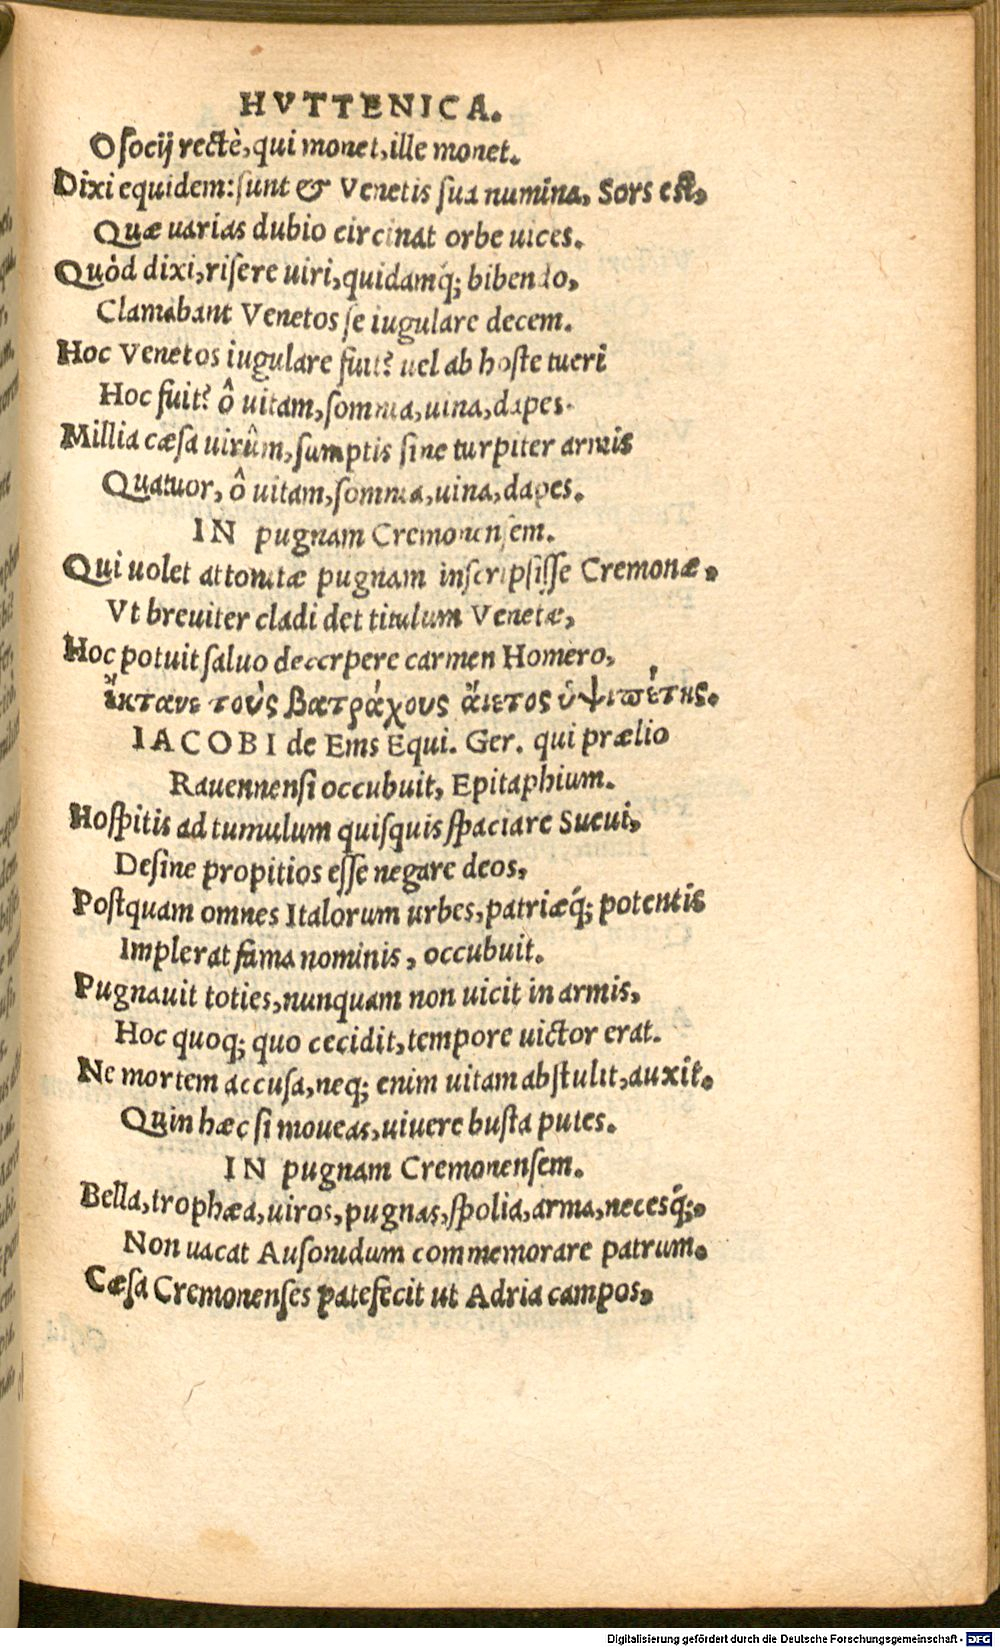 HVTTENICA.
O socij rectè, qui monet, ille monet.
Dixi equidem: sunt & Venetis sua numina, Sors est,
Quæ uarias dubio circinat orbe uices.
Quòd dixi, risere uiri, quidamq́; bibendo,
Clamabant Venetos se iugulare decem.
Hoc Venetos iugulare fuit? uel ab hoste tueri
Hoc fuit? ô uitam, somnia, uina, dapes.
Millia cæsa uirûm, sumptis sine turpiter armis
Quatuor, ô uitam, somnia, uina, dapes.
IN pugnam Cremonensem.
Qui uolet attonitæ pugnam inscripsisse Cremonæ,
Vt breuiter cladi det titulum Venetæ,
Hoc potuit saluo decerpere carmen Homero,
ἔκτανε τοὺς βατράχους ἄιετος ὑψιπέτης.
IACOBI de Ems Equi. Ger. qui prælio
Rauennensi occubuit, Epitaphium.
Hospitis ad tumulum quisquis spaciare Sueui,
Desine propitios esse negare deos,
Postquam omnes Italorum urbes, patriæq́; potentis
Implerat fama nominis, occubuit.
Pugnauit toties, nunquam non uicit in armis,
Hoc quoq; quo cecidit, tempore uictor erat.
Ne mortem accusa, neq; enim uitam abstulit, auxit.
Quin hæc si moueas, uiuere busta putes.
IN pugnam Cremonensem.
Bella, trophæa, uiros, pugnas, spolia, arma, necesq́;,
Non uacat Ausonidum commemorare patrum.
Cæsa Cremonenses patefecit ut Adria campos,
Digitalisierung gefördert durch die Deutsche Forschungsgemeinschaft - DFG